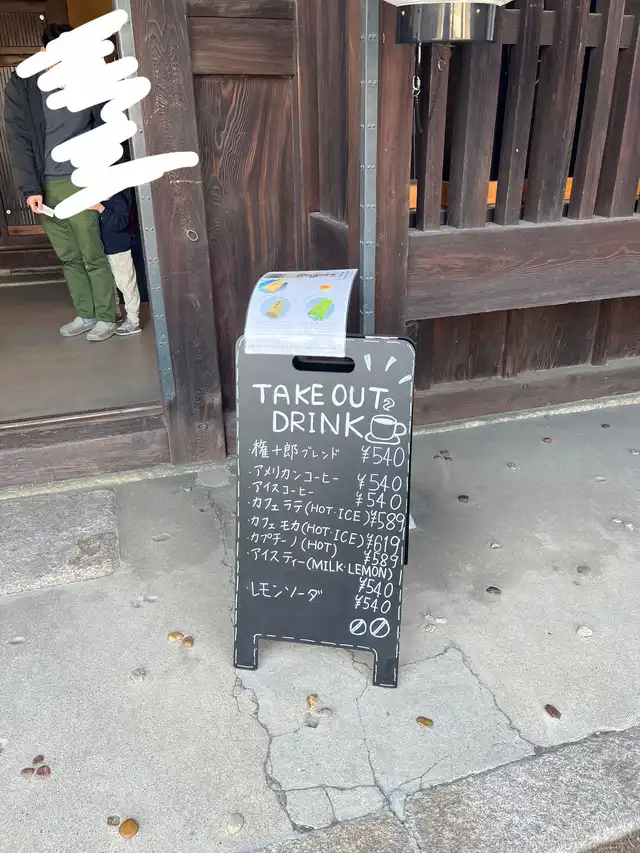 TAKE OUT
DRINK
権十郎ブレンド ¥540
・アメリカンコーヒー ¥540
・アイスコーヒー ¥540
・カフェラテ(HOT・ICE) ¥589
・カフェモカ(HOT・ICE) ¥619
・カプチーノ(HOT) ¥589
・アイスティー(MILK・LEMON)
¥540
・レモンソーダ ¥540